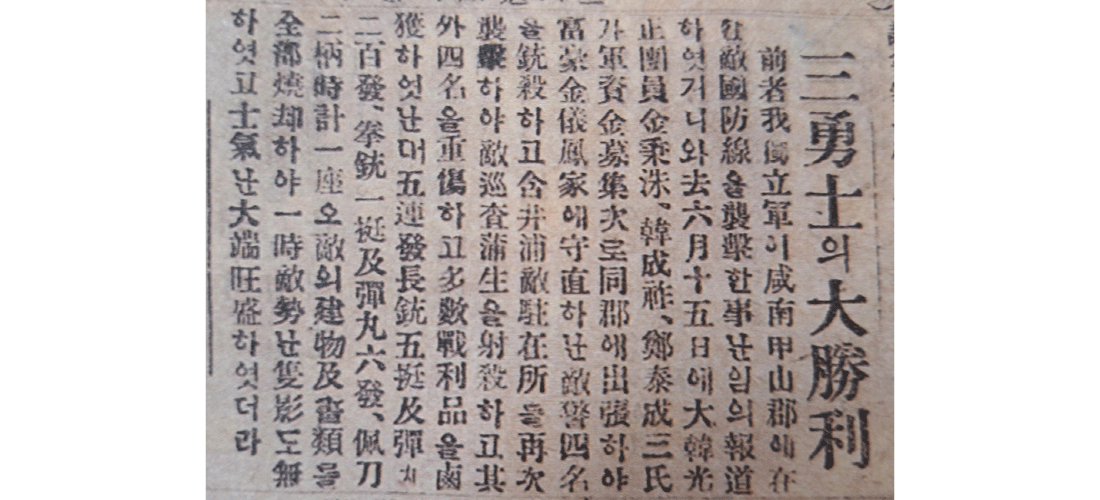 三勇士의大勝利
前者我獨立軍이咸南甲山郡에在
한敵國防線을襲擊한事난임의報道
하엿거니와去六月十五日에大韓光
正團員金秉洙、韓成祚、鄭泰成三氏
가軍資金募集次로同郡에出張하야
富豪金儀鳳家에守直하난敵警四名
을銃殺하고含井浦敵駐在所를再次
襲擊하야敵巡査蒲生을射殺하고其
外四名을重傷하고多數戰利品을鹵
獲하엿난대五連發長銃五挺及彈
二百發、拳銃一挺及彈丸六發、佩刀
二柄時計一座오敵의建物及書類를
全部燒却하야一時敵勢난隻影도無
하엿고士氣난大端旺盛하엿더라